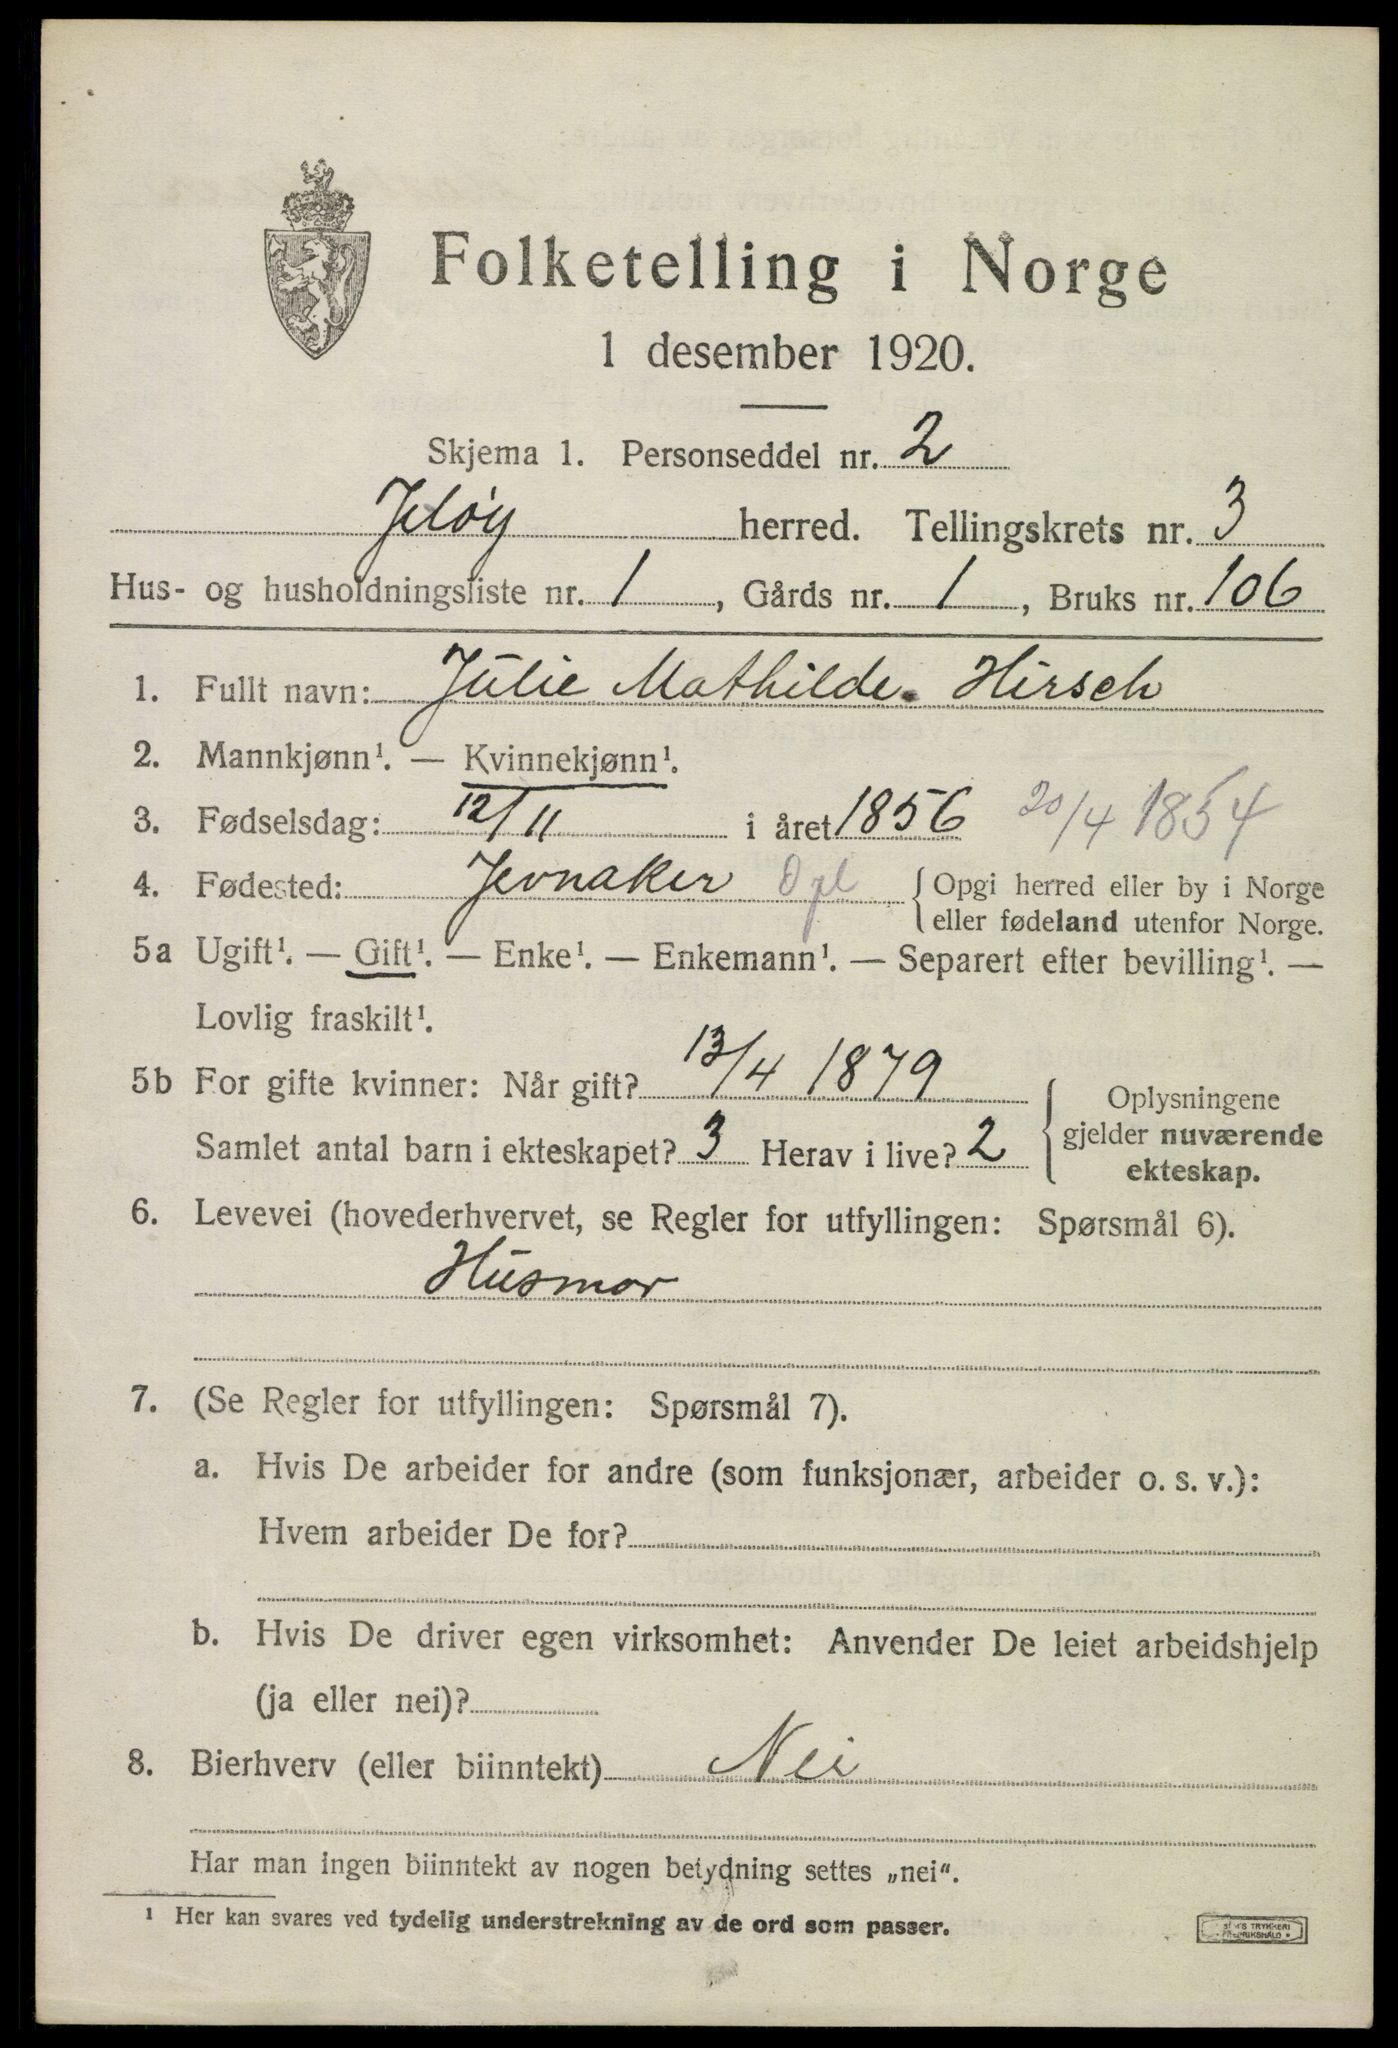 Folketelling i Norge
1 desember 1920.
Skjema 1. Personseddel nr. 2
Jeløy herred. Tellingskrets nr. 3
Hus- og husholdningsliste nr. 1, Gårds nr. 1, Bruks nr. 106
1. Fullt navn: Julie Mathilde Hirsch
2. Mannkjønn¹. — Kvinnekjønn¹.
3. Fødselsdag: 12/11 i året 1856 20/4 1854
4. Fødested: Jevnaker Opl { Opgi herred eller by i Norge
eller fødeland utenfor Norge.
5a Ugift¹. — Gift¹. — Enke¹. — Enkemann¹. — Separert efter bevilling¹. —
Lovlig fraskilt¹.
5b For gifte kvinner: Når gift? 13/4 1879
Samlet antal barn i ekteskapet? 3 Herav i live? 2
Oplysningene
gjelder nuværende
ekteskap.
6. Levevei (hovederhvervet, se Regler for utfyllingen: Spørsmål 6).
Husmor
7. (Se Regler for utfyllingen: Spørsmål 7).
a. Hvis De arbeider for andre (som funksjonær, arbeider o. s. v.):
Hvem arbeider De for?
b. Hvis De driver egen virksomhet: Anvender De leiet arbeidshjelp
(ja eller nei)?
8. Bierhverv (eller biinntekt) Nei
Har man ingen biinntekt av nogen betydning settes „nei“.
¹ Her kan svares ved tydelig understrekning av de ord som passer.
TRYKKERI